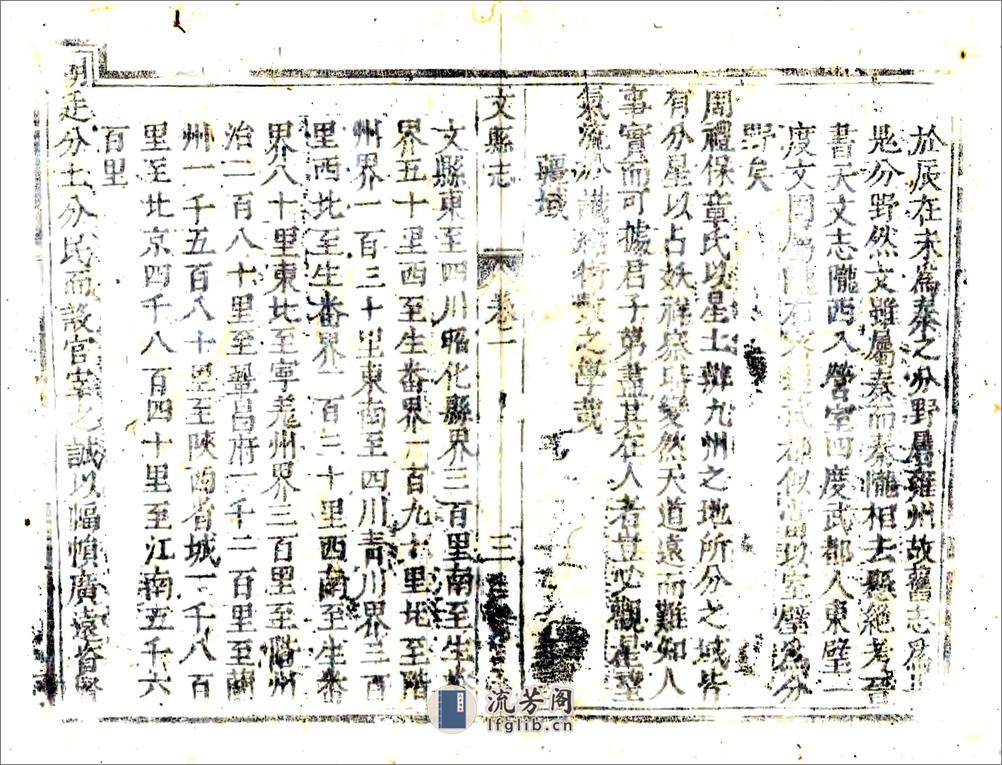 於辰在未為秦之分野屬雍州故舊志為
是分野然文雖屬秦而秦隴相去懸絕考晉
書天文志隴西入營室四度武都入東壁一
度文同屬隴右 武都似當以室壁為分
野矣
周禮保章氏以星土辨九州之地所分之域皆
有分星以占妖祥 變然天道遠而難知人
事實而可據君子第盡其在人者豈必觀星望
氣 術數之學哉
疆域
文縣志
卷一
三
文縣東至四川昭化縣界三百里南至生番
界五十里西至生番界一百九十里北至階
州界一百三十里東南至四川青川界三百
里西北至生番界一百三十里西南至生番
界八十里東北至寧羌州界三百里至階州
治二百八十里至鞏昌府一千二百里至
州一千五百八十里至陝西省城一千八百
里至北京四千八百四十里至江南五千六
百里
分土分民而設官宰之誠以幅幀廣遠
流芳阁
lfglib.cn